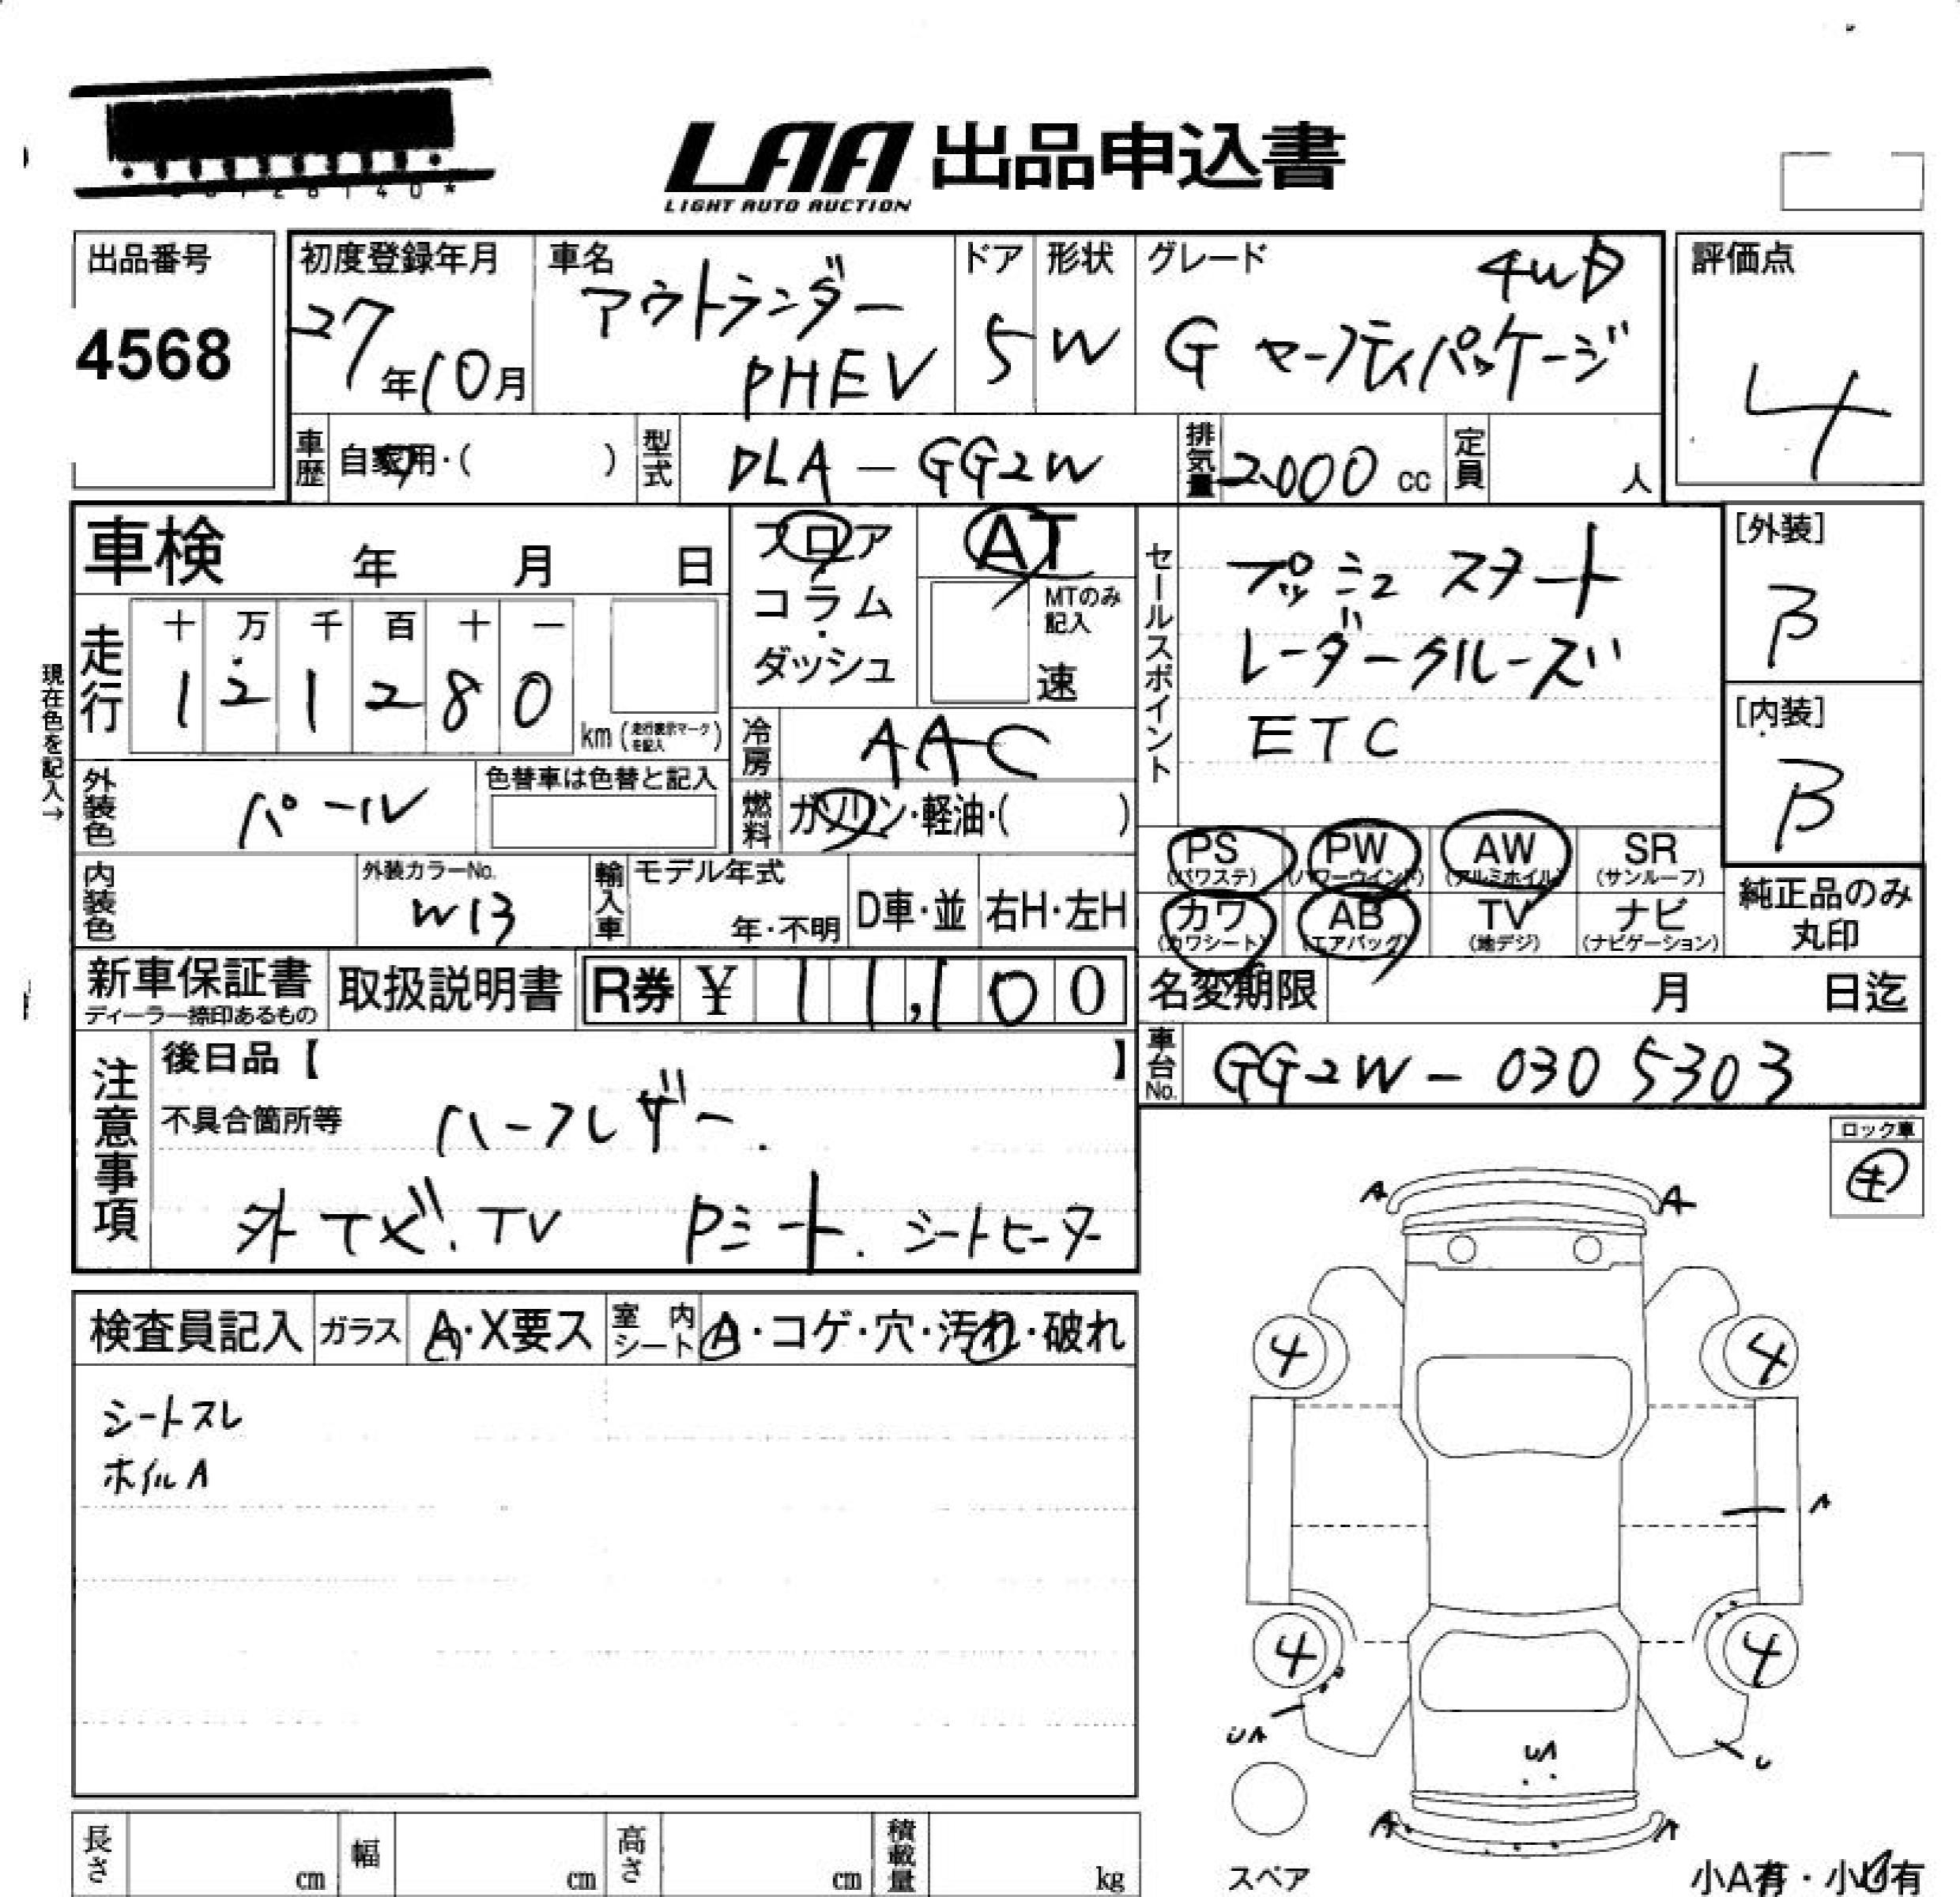 LAA 出品申込書
LIGHT AUTO AUCTION
出品番号
4568
初度登録年月
27年10月
車名
アウトランダー
PHEV
ドア
5
形状
W
グレード
4WD
G セーフティパッケージ
評価点
4
車歴
自家用・( )
型式
DLA-GG2W
排気量
2000 cc
定員
人
車検 年 月 日
フロア
コラム
・
ダッシュ
AT
MTのみ
記入
速
セールスポイント
プッシュ スタート
レーダークルーズ
ETC
[外装]
B
[内装]
B
現在色を記入→
走行
十 万 千 百 十 一
1 2 1 2 8 0
km (走行表示マークを記入)
冷房
AAC
外装色
パール
色替車は色替と記入
燃料
ガソリン・軽油・( )
PS
(パワステ)
PW
(パワーウインド)
AW
(アルミホイル)
SR
(サンルーフ)
カワ
(カワシート)
AB
(エアバッグ)
TV
(地デジ)
ナビ
(ナビゲーション)
純正品のみ
丸印
内装色
外装カラーNo.
W13
輸入車
モデル年式
年・不明
D車・並
右H・左H
新車保証書
ディーラー捺印あるもの
取扱説明書
R券 ¥ 11,100
名変期限 月 日迄
車台No.
GG2W-0305303
注意事項
後日品【 】
不具合箇所等
ハーフレザー.
外ナビ.TV Pシート.シートヒーター
ロック車
検査員記入
ガラス
A・X要ス
室内
シート
A・コゲ・穴・汚れ・破れ
シートスレ
ホイルA
A A
4 4
A
4 4
UA
UA
U
A A
スペア
小A有・小U有
長さ cm
幅 cm
高さ cm
積載量 kg